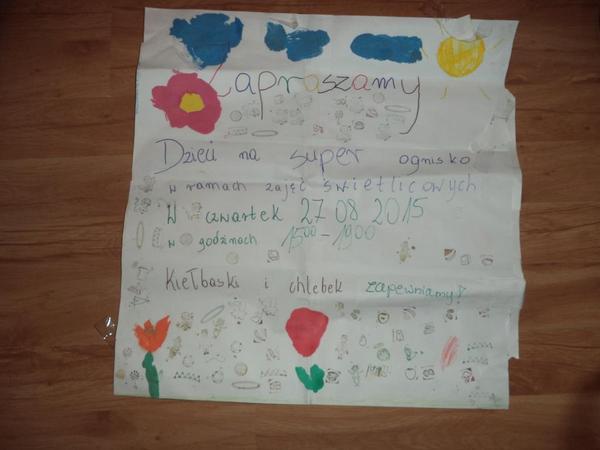 Zapraszamy
Dzieci na super ognisko
w ramach zajęć świetlicowych
W czwartek 27 08 2015
w godzinach 15⁰⁰-19⁰⁰
Kiełbaski i chlebek zapewniamy!